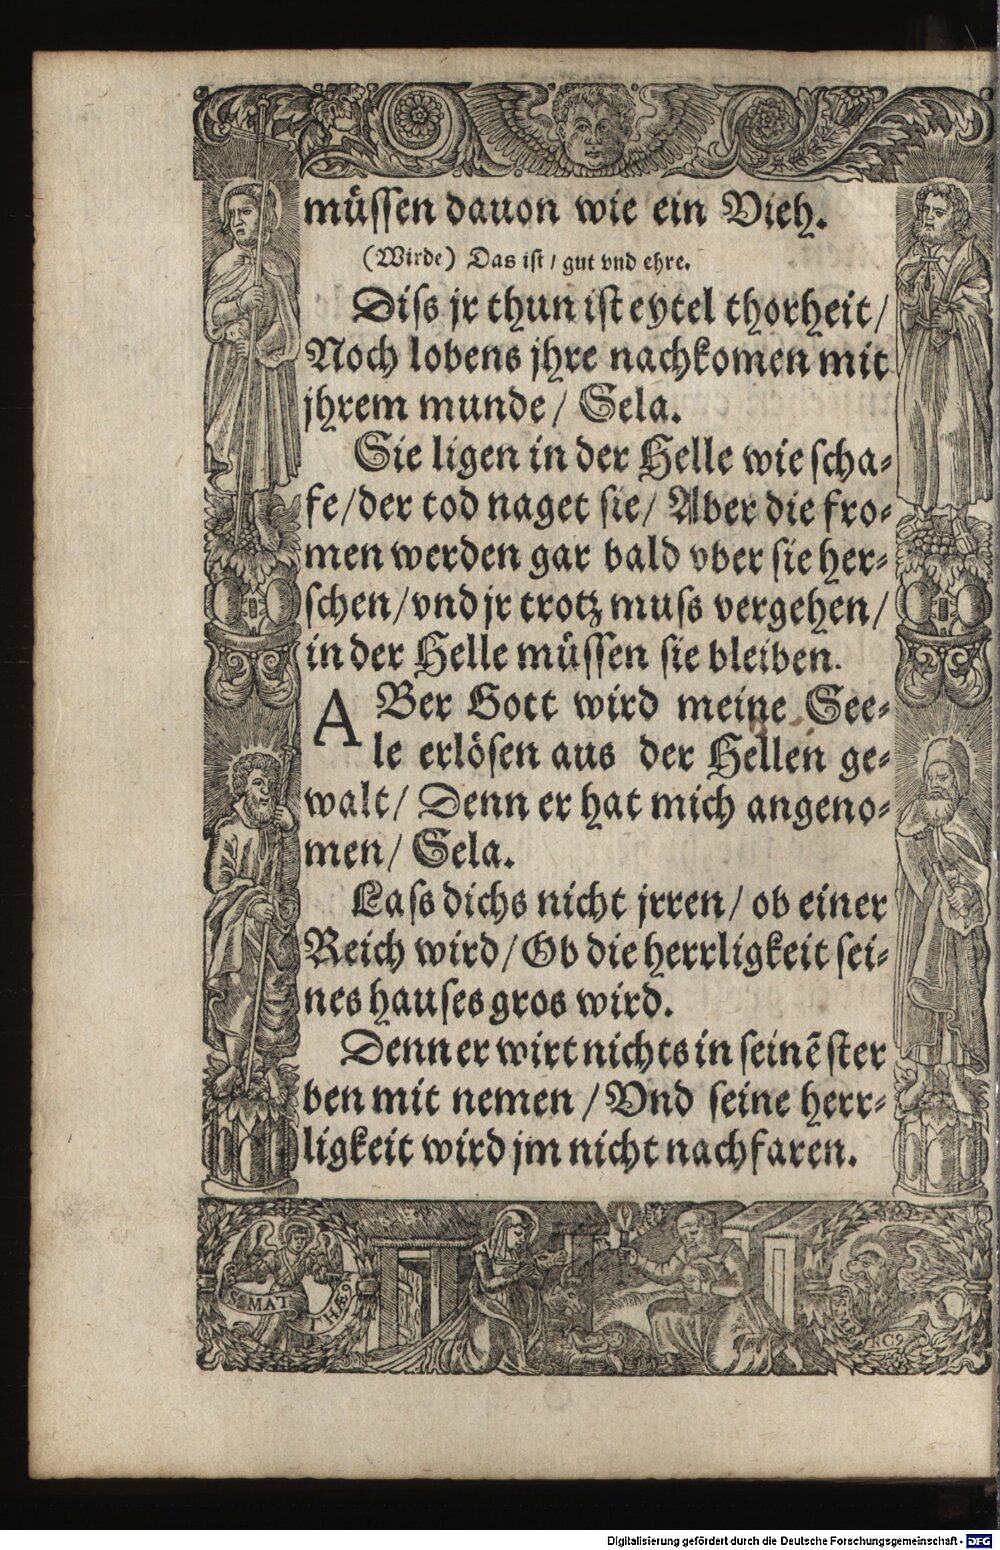 müssen dauon wie ein Vieh.
(Wirde) Das ist / gut vnd ehre.
Diss jr thun ist eytel thorheit /
Noch lobens jhre nachkomen mit
jhrem munde / Sela.
Sie ligen in der Helle wie scha-
fe / der tod naget sie / Aber die fro-
men werden gar bald vber sie her-
schen / vnd jr trotz muss vergehen /
in der Helle müssen sie bleiben.
ABer Gott wird meine See-
le erlösen aus der Hellen ge-
walt / Denn er hat mich angeno-
men / Sela.
Lass dichs nicht jrren / ob einer
Reich wird / Ob die herrligkeit sei-
nes hauses gros wird.
Denn er wirt nichts in seinē ster
ben mit nemen / Vnd seine herr-
ligkeit wird jm nicht nachfaren.
S. MATTHÆ9
Digitalisierung gefördert durch die Deutsche Forschungsgemeinschaft - DFG